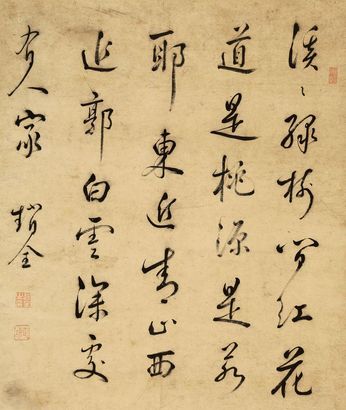 溪〻綠樹間紅花
道是桃源是若
耶東近青山西
近郭白雲深處
有人家